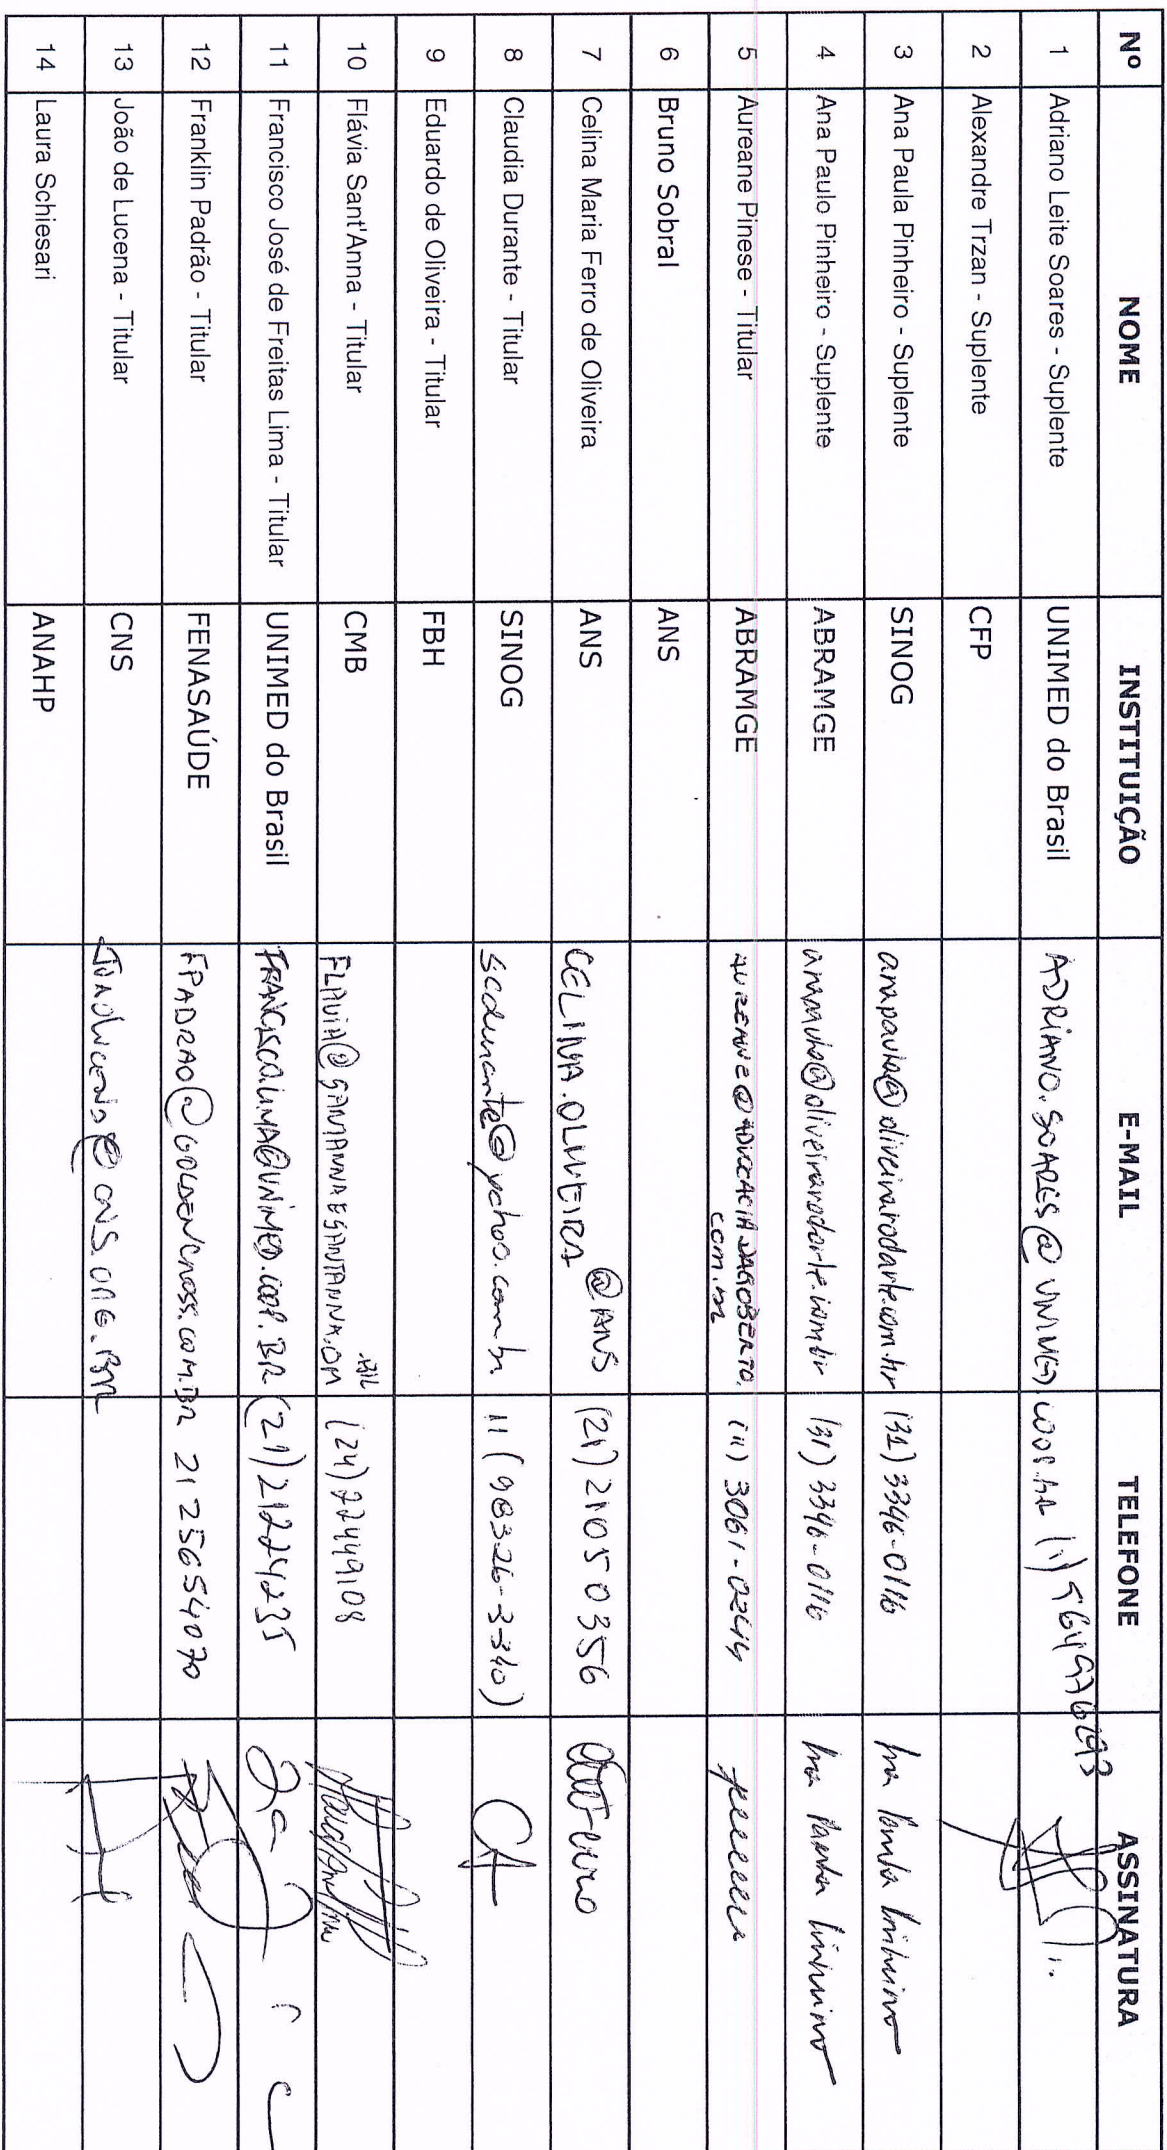 Nº NOME INSTITUIÇÃO E-MAIL TELEFONE ASSINATURA
1 Adriano Leite Soares - Suplente UNIMED do Brasil ADRIANO.SOARES@UNIMED.COOP.BR
2 Alexandre Trzan - Suplente CFP
3 Ana Paula Pinheiro - Suplente SINOG anapaula@oliveirarodarte.com.br (31) 3346-0116 Ana Paula Pinheiro
4 Ana Paulo Pinheiro - Suplente ABRAMGE anapaula@oliveirarodarte.com.br (31) 3346-0116 Ana Paula Pinheiro
5 Aureane Pinese - Titular ABRAMGE AUREANE@ADVOCACIADAGOBERTO.
com.br (11) 3061-0244
6 Bruno Sobral ANS
7 Celina Maria Ferro de Oliveira ANS CELINA.OLIVEIRA @ANS (21) 2105 0356
8 Claudia Durante - Titular SINOG scdurante@yahoo.com.br 11 (98326-3310)
9 Eduardo de Oliveira - Titular FBH
10 Flávia Sant'Anna - Titular CMB FLAVIA@SANTANNAESANTANNA.COM .BR (24) 22449108
11 Francisco José de Freitas Lima - Titular UNIMED do Brasil FRANCISCO.LIMA@UNIMED.COOP.BR (21) 21224235
12 Franklin Padrão - Titular FENASAÚDE FPADRAO@GOLDENCROSS.COM.BR 21 25654070
13 João de Lucena - Titular CNS @CNS.ORG.BR
14 Laura Schiesari ANAHP